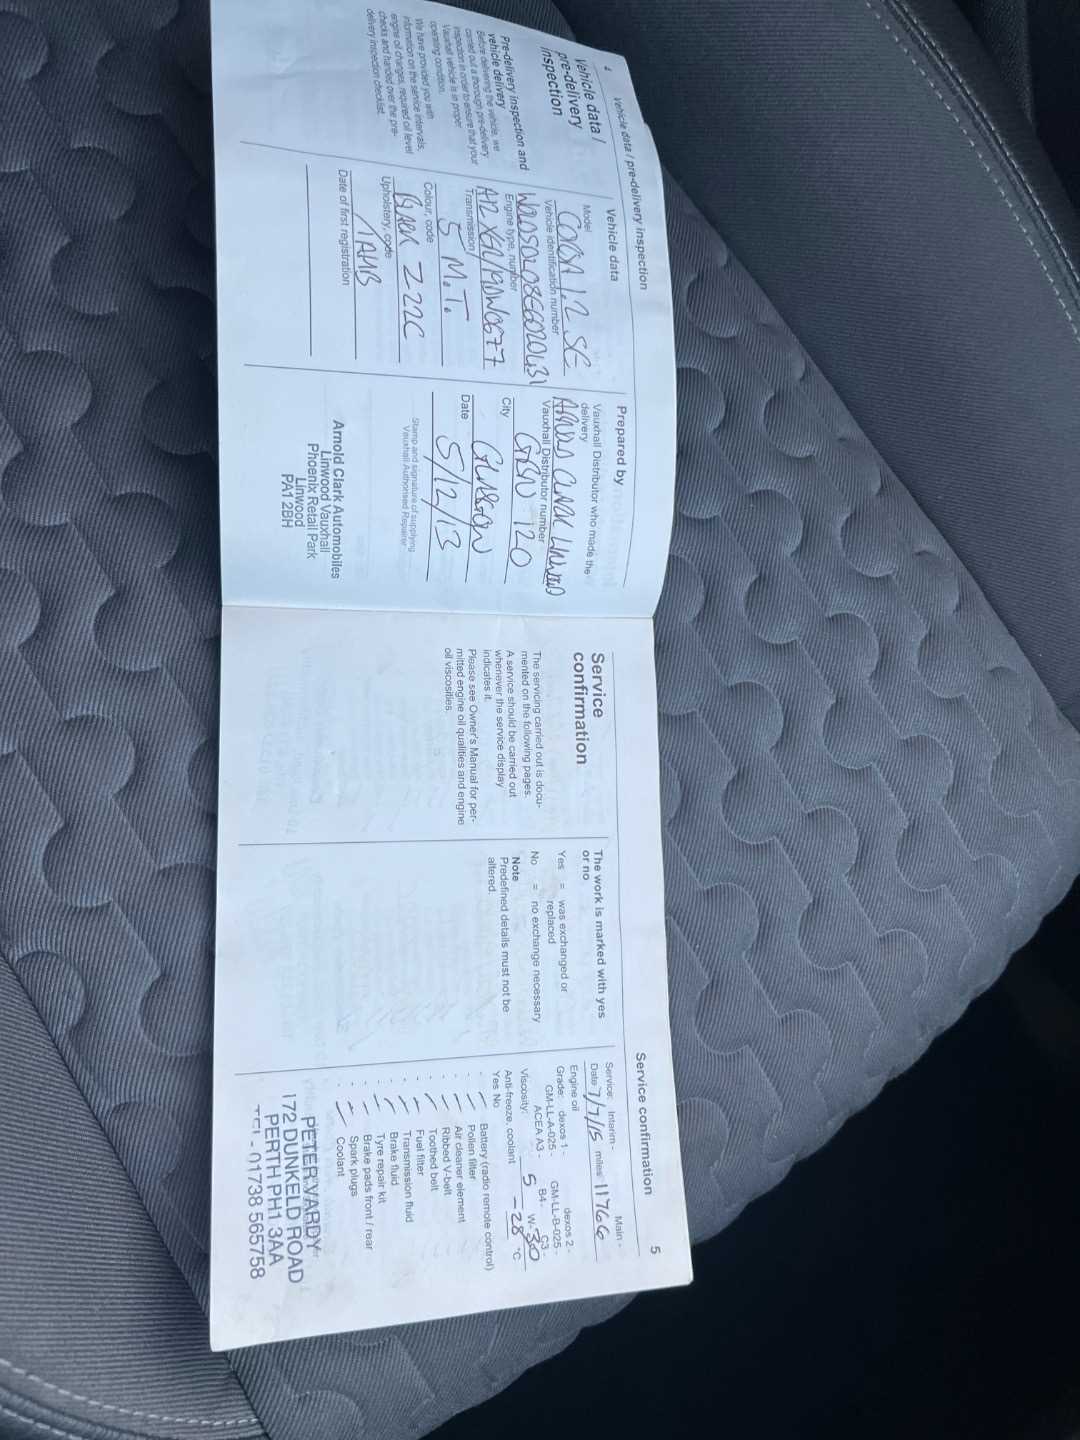 4
Vehicle data / pre-delivery inspection
Vehicle data /
pre-delivery
inspection
Pre-delivery inspection and
vehicle delivery
Before delivering the vehicle, we
carried out a thorough pre-delivery
inspection in order to ensure that your
Vauxhall vehicle is in proper
operating condition.
We have provided you with
information on the service intervals,
engine oil changes, required oil level
checks and handed over the pre-
delivery inspection checklist.
Vehicle data
Model
CORSA 1.2 SE
Vehicle identification number
Engine type, number
Transmission
5 M.T.
Colour, code
BLACK Z22C
Upholstery, code
TAMB
Date of first registration
Prepared by
Vauxhall Distributor who made the
delivery
ARNOLD CLARK LINWOOD
Vauxhall Distributor number
120
City
GLASGOW
Date
5/12/13
Stamp and signature of supplying
Vauxhall Authorised Repairer
Arnold Clark Automobiles
Linwood Vauxhall
Phoenix Retail Park
Linwood
PA1 2BH
Service confirmation
5
Service
confirmation
The servicing carried out is docu-
mented on the following pages.
A service should be carried out
whenever the service display
indicates it.
Please see Owner's Manual for per-
mitted engine oil qualities and engine
oil viscosities.
The work is marked with yes
or no
Yes = was exchanged or
replaced
No = no exchange necessary
Note
Predefined details must not be
altered.
Service: Interim - Main -
Date 7/7/15 miles 11766
Engine oil
Grade: dexos 1 - dexos 2 -
GM-LL-A-025 - GM-LL-B-025 -
ACEA A3 - B4 - C3 -
Viscosity: 5 W- 30
Anti-freeze, coolant -28 °C
Yes No
- Battery (radio remote control)
- Pollen filter
- Air cleaner element
- Ribbed V-belt
- Toothed belt
- Fuel filter
- Transmission fluid
- Brake fluid
- Tyre repair kit
- Brake pads front / rear
- Spark plugs
- Coolant
PETER VARDY
172 DUNKELD ROAD
PERTH PH1 3AA
TEL - 01738 565758